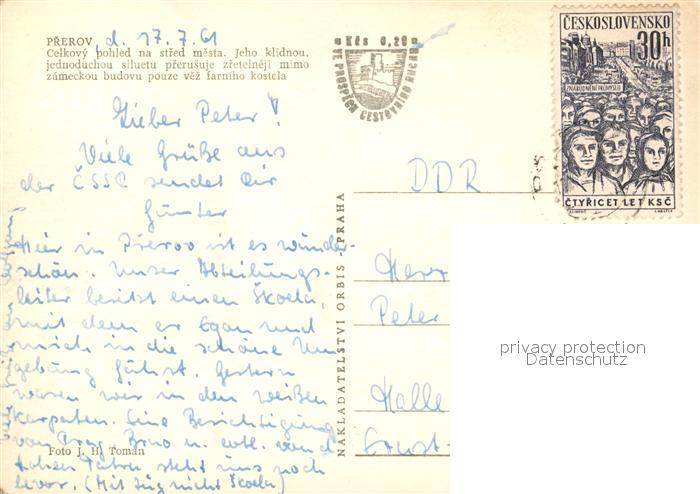 PŘEROV, d. 17.7.61
Celkový pohled na střed města. Jeho klidnou,
jednoduchou siluetu přerušuje zřetelněji mimo
zámeckou budovu pouze věž farního kostela
Kčs 0,20
VE PROSPĚCH CESTOVNÍHO RUCHU
ČESKOSLOVENSKO
30h
ZNÁRODNĚNÍ PRŮMYSLU
ČTYŘICET LET KSČ
Lieber Peter!
Viele Grüße aus
der ČSSR sendet Dir
Günter
Hier in Přerov ist es wunder-
schön. Unser Abteilungs-
leiter besitzt einen Škoda,
mit dem er Egon und
mich in die schöne Um
gebung fährt. Gestern
waren wir in den weißen
Karpaten. Eine Besichtigung
von Prag, Brno u. evtl. von d
hohen Tatra steht uns noch
bevor. (Mit Zug nicht Škoda)
Foto J. H. Toman
NAKLADATELSTVÍ ORBIS - PRAHA
DDR
Herr
Peter
Halle
Ernst-
privacy protection
Datenschutz